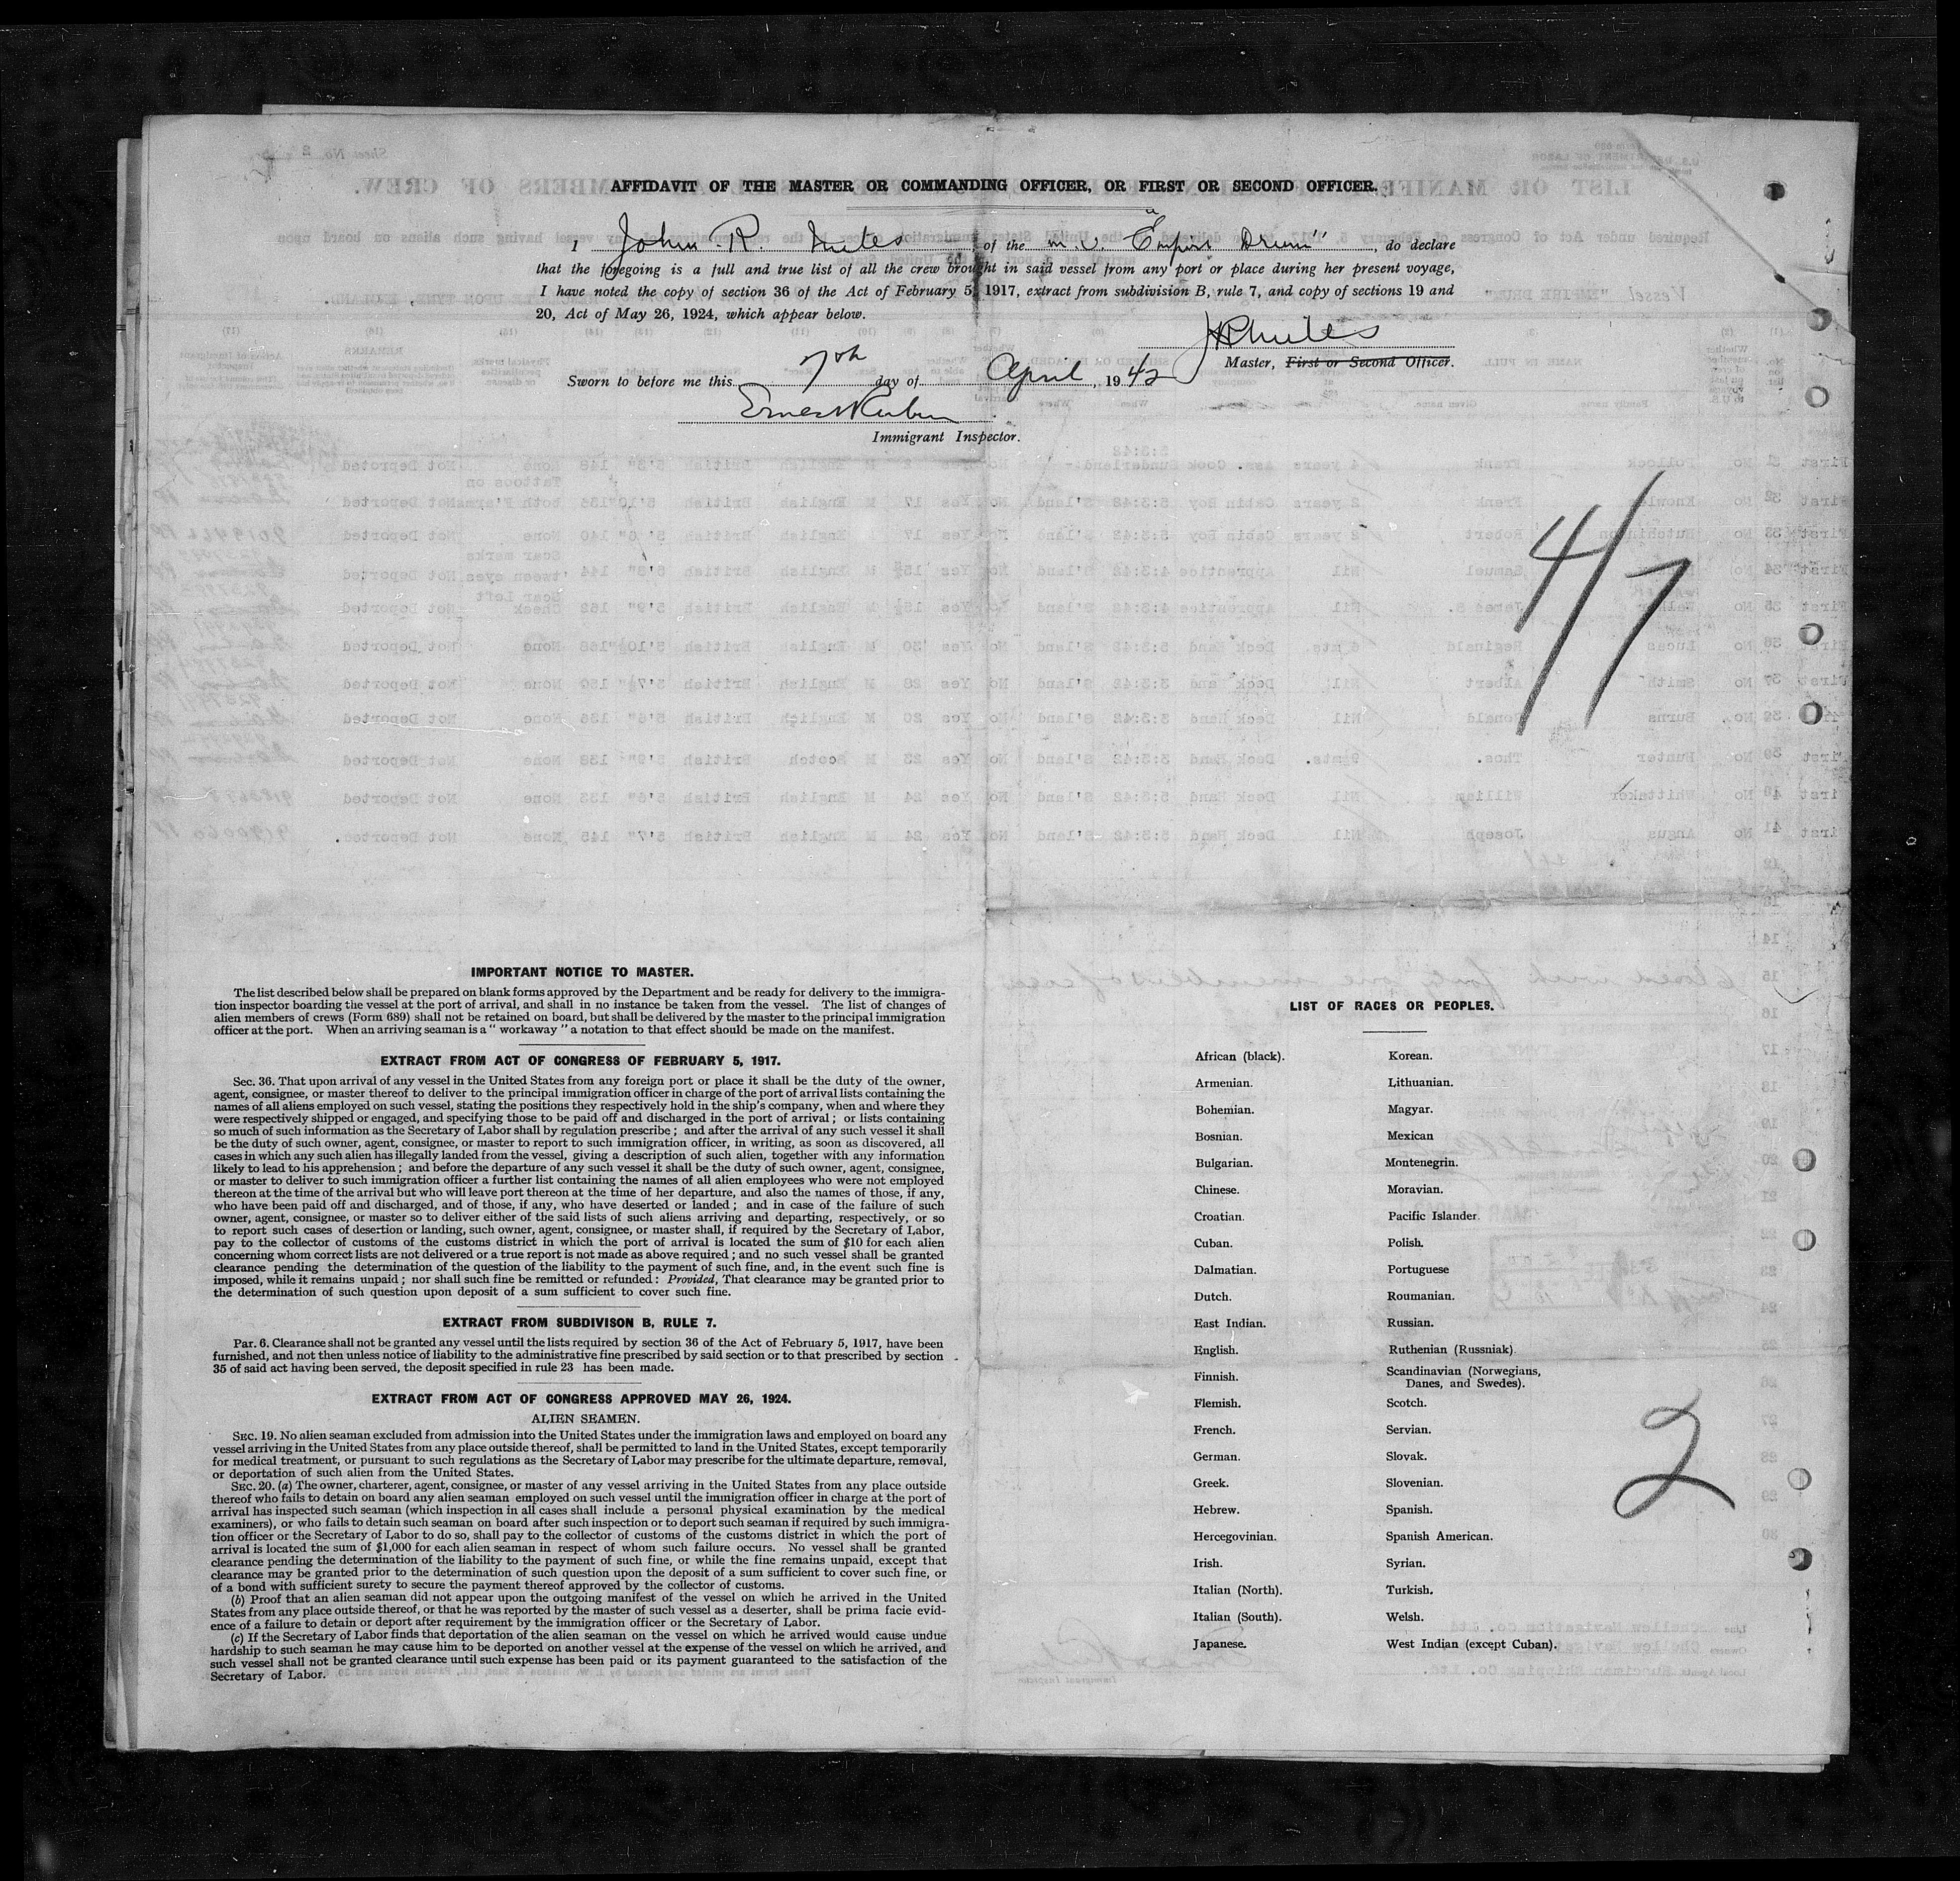 AFFIDAVIT OF THE MASTER OR COMMANDING OFFICER, OR FIRST OR SECOND OFFICER.
I John R. Miles of the m.v. "Empire Drum", do declare
that the foregoing is a full and true list of all the crew brought in said vessel from any port or place during her present voyage,
I have noted the copy of section 36 of the Act of February 5, 1917, extract from subdivision B, rule 7, and copy of sections 19 and
20, Act of May 26, 1924, which appear below.
JRMiles
Master, First or Second Officer.
Sworn to before me this 7th day of April, 1942
Ernest Rubin
Immigrant Inspector.
4/7
IMPORTANT NOTICE TO MASTER.
The list described below shall be prepared on blank forms approved by the Department and be ready for delivery to the immigra-
tion inspector boarding the vessel at the port of arrival, and shall in no instance be taken from the vessel. The list of changes of
alien members of crews (Form 689) shall not be retained on board, but shall be delivered by the master to the principal immigration
officer at the port. When an arriving seaman is a "workaway" a notation to that effect should be made on the manifest.
EXTRACT FROM ACT OF CONGRESS OF FEBRUARY 5, 1917.
Sec. 36. That upon arrival of any vessel in the United States from any foreign port or place it shall be the duty of the owner,
agent, consignee, or master thereof to deliver to the principal immigration officer in charge of the port of arrival lists containing the
names of all aliens employed on such vessel, stating the positions they respectively hold in the ship's company, when and where they
were respectively shipped or engaged, and specifying those to be paid off and discharged in the port of arrival; or lists containing
so much of such information as the Secretary of Labor shall by regulation prescribe; and after the arrival of any such vessel it shall
be the duty of such owner, agent, consignee, or master to report to such immigration officer, in writing, as soon as discovered, all
cases in which any such alien has illegally landed from the vessel, giving a description of such alien, together with any information
likely to lead to his apprehension; and before the departure of any such vessel it shall be the duty of such owner, agent, consignee,
or master to deliver to such immigration officer a further list containing the names of all alien employees who were not employed
thereon at the time of the arrival but who will leave port thereon at the time of her departure, and also the names of those, if any,
who have been paid off and discharged, and of those, if any, who have deserted or landed; and in case of the failure of such
owner, agent, consignee, or master so to deliver either of the said lists of such aliens arriving and departing, respectively, or so
to report such cases of desertion or landing, such owner, agent, consignee, or master shall, if required by the Secretary of Labor,
pay to the collector of customs of the customs district in which the port of arrival is located the sum of $10 for each alien
concerning whom correct lists are not delivered or a true report is not made as above required; and no such vessel shall be granted
clearance pending the determination of the question of the liability to the payment of such fine, and, in the event such fine is
imposed, while it remains unpaid; nor shall such fine be remitted or refunded: Provided, That clearance may be granted prior to
the determination of such question upon deposit of a sum sufficient to cover such fine.
EXTRACT FROM SUBDIVISON B, RULE 7.
Par. 6. Clearance shall not be granted any vessel until the lists required by section 36 of the Act of February 5, 1917, have been
furnished, and not then unless notice of liability to the administrative fine prescribed by said section or to that prescribed by section
35 of said act having been served, the deposit specified in rule 23 has been made.
EXTRACT FROM ACT OF CONGRESS APPROVED MAY 26, 1924.
ALIEN SEAMEN.
SEC. 19. No alien seaman excluded from admission into the United States under the immigration laws and employed on board any
vessel arriving in the United States from any place outside thereof, shall be permitted to land in the United States, except temporarily
for medical treatment, or pursuant to such regulations as the Secretary of Labor may prescribe for the ultimate departure, removal,
or deportation of such alien from the United States.
SEC. 20. (a) The owner, charterer, agent, consignee, or master of any vessel arriving in the United States from any place outside
thereof who fails to detain on board any alien seaman employed on such vessel until the immigration officer in charge at the port of
arrival has inspected such seaman (which inspection in all cases shall include a personal physical examination by the medical
examiners), or who fails to detain such seaman on board after such inspection or to deport such seaman if required by such immigra-
tion officer or the Secretary of Labor to do so, shall pay to the collector of customs of the customs district in which the port of
arrival is located the sum of $1,000 for each alien seaman in respect of whom such failure occurs. No vessel shall be granted
clearance pending the determination of the liability to the payment of such fine, or while the fine remains unpaid, except that
clearance may be granted prior to the determination of such question upon the deposit of a sum sufficient to cover such fine, or
of a bond with sufficient surety to secure the payment thereof approved by the collector of customs.
(b) Proof that an alien seaman did not appear upon the outgoing manifest of the vessel on which he arrived in the United
States from any place outside thereof, or that he was reported by the master of such vessel as a deserter, shall be prima facie evid-
ence of a failure to detain or deport after requirement by the immigration officer or the Secretary of Labor.
(c) If the Secretary of Labor finds that deportation of the alien seaman on the vessel on which he arrived would cause undue
hardship to such seaman he may cause him to be deported on another vessel at the expense of the vessel on which he arrived, and
such vessel shall not be granted clearance until such expense has been paid or its payment guaranteed to the satisfaction of the
Secretary of Labor.
LIST OF RACES OR PEOPLES.
African (black). Korean.
Armenian. Lithuanian.
Bohemian. Magyar.
Bosnian. Mexican
Bulgarian. Montenegrin.
Chinese. Moravian.
Croatian. Pacific Islander.
Cuban. Polish.
Dalmatian. Portuguese
Dutch. Roumanian.
East Indian. Russian.
English. Ruthenian (Russniak).
Finnish. Scandinavian (Norwegians,
Danes, and Swedes).
Flemish. Scotch.
French. Servian.
German. Slovak.
Greek. Slovenian.
Hebrew. Spanish.
Hercegovinian. Spanish American.
Irish. Syrian.
Italian (North). Turkish.
Italian (South). Welsh.
Japanese. West Indian (except Cuban).
2